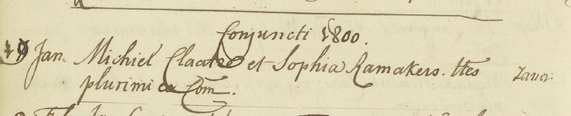 Conjuncti 1800.
19 Jan. Michiel Claates et Sophia Ramakers. ttes
plurimi ex Com.